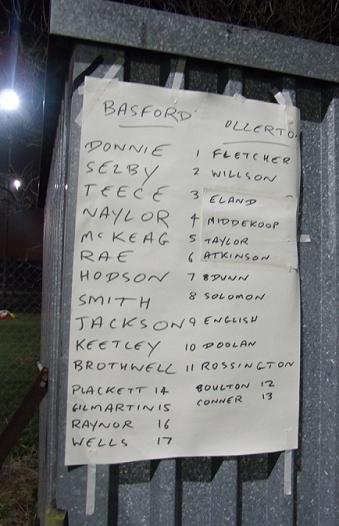 BASFORD OLLERTO
DONNIE 1 FLETCHER
SELBY 2 WILLSON
TEECE 3 ELAND
NAYLOR 4 MIDDEKOOP
McKEAG 5 TAYLOR
RAE 6 ATKINSON
HODSON 7 BDUNN
SMITH 8 SOLOMON
JACKSON 9 ENGLISH
KEETLEY 10 DOOLAN
BROTHWELL 11 ROSSINGTON
PLACKETT 14 BOULTON 12
GILMARTIN 15 CONNER 13
RAYNOR 16
WELLS 17